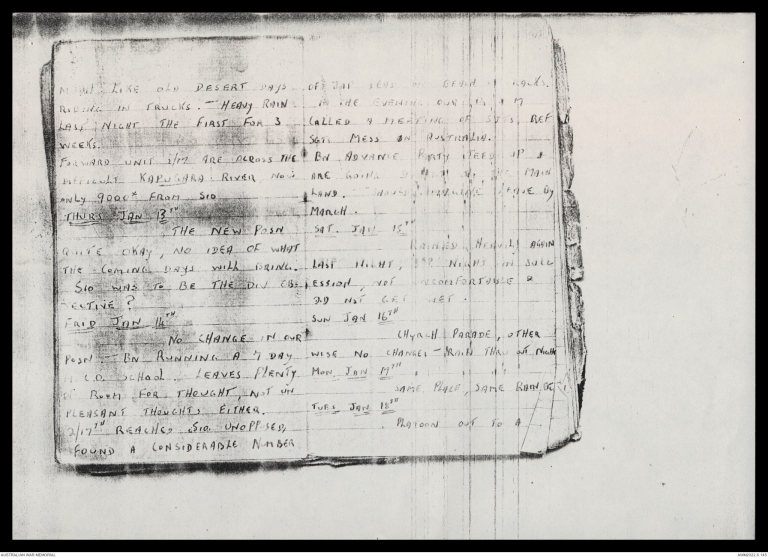 NIGHT LIKE OLD DESERT DAYS
RIDING IN TRUCKS. — HEAVY RAIN
LAST NIGHT THE FIRST FOR 3
WEEKS.
FORWARD UNIT 2/17 ARE ACROSS THE
DIFFICULT KAPUGARA RIVER NOW
ONLY 9000x FROM SIO
THURS JAN 13TH
THE NEW POSN
QUITE OKAY, NO IDEA OF WHAT
THE COMING DAYS WILL BRING.
SIO WAS TO BE THE DIV OBJ-
ECTIVE?
FRID JAN 14TH
NO CHANGE IN OUR
POSN — BN RUNNING A 7 DAY
C.O. SCHOOL. LEAVES PLENTY
OF ROOM FOR THOUGHT, NOT UN
PLEASANT THOUGHTS EITHER.
2/17TH REACHES SIO UNOPPOSED,
FOUND A CONSIDERABLE NUMBER
OF JAP DEAD ON BEACH
IN THE EVENING OUR
CALLED A MEETING OF SGTS. REF
SGTS MESS ON AUSTRALIA.
BN ADVANCE PARTY
ARE GOING THE MAIN
LAND. LEAVE BY
MARCH.
SAT. JAN 15TH
RAINED HEAVILY AGAIN
LAST NIGHT, 3RD NIGHT IN SUCC
ESSION, NOT UNCOMFORTABLE &
DID NOT GET WET.
SUN JAN 16TH
CHURCH PARADE, OTHER
WISE NO CHANGE — RAIN THRU OUT NIGHT
MON. JAN 17TH
SAME PLACE, SAME RAIN,
TUES JAN 18TH
PLATOON OUT TO A
AUSTRALIAN WAR MEMORIAL